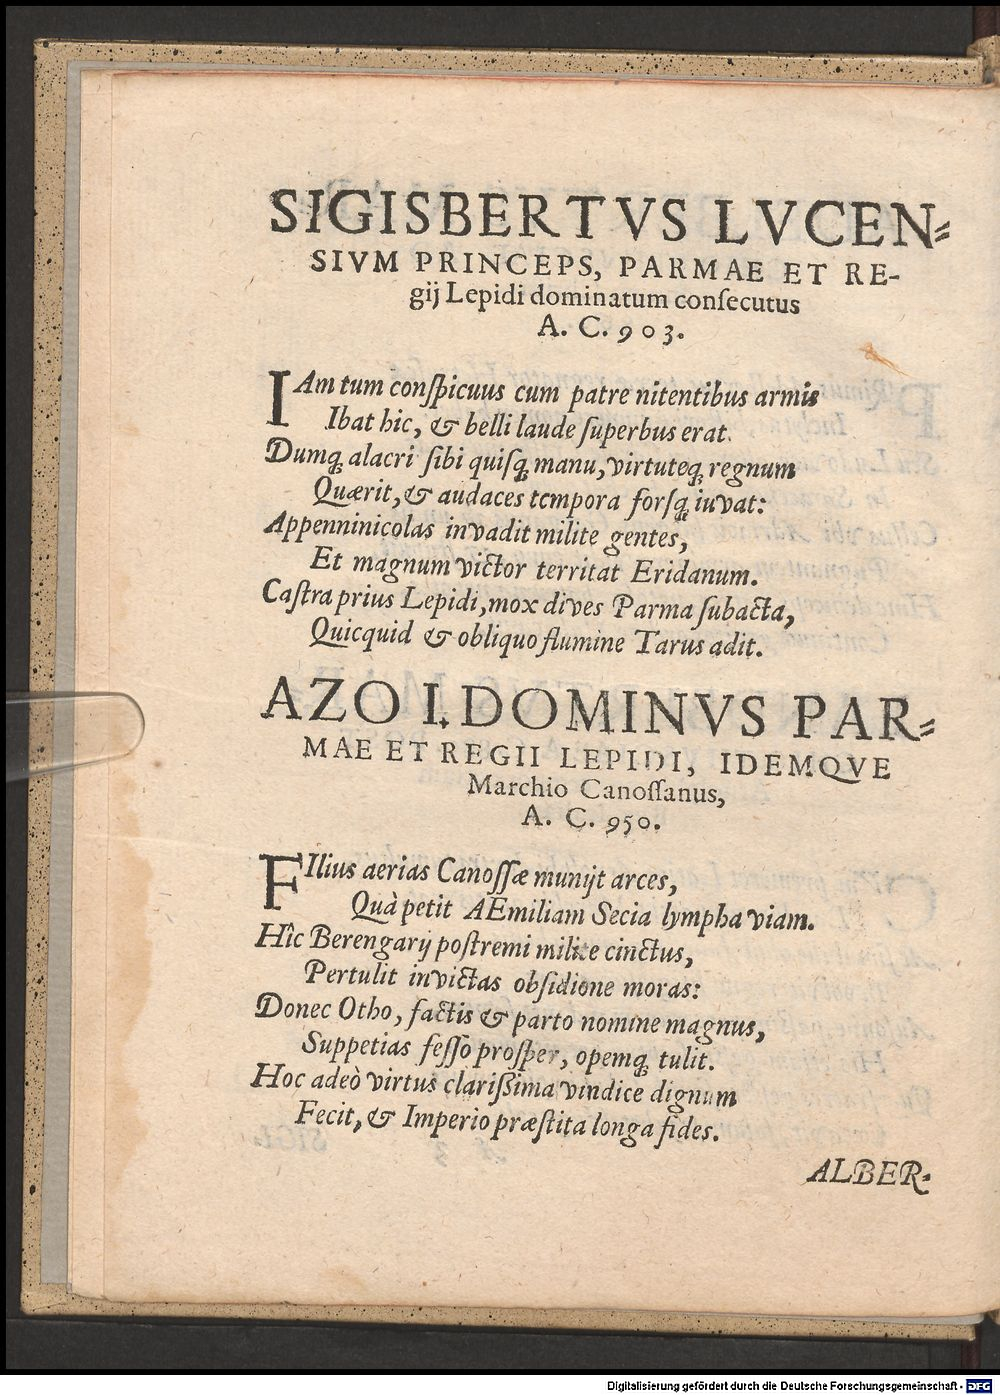 SIGISBERTVS LVCEN-
SIVM PRINCEPS, PARMAE ET RE-
gij Lepidi dominatum conſecutus
A. C. 903.
IAm tum conſpicuus cum patre nitentibus armis
Ibat hic, & belli laude ſuperbus erat.
Dumq́; alacri ſibi quiſq́; manu, virtuteq́; regnum
Quærit, & audaces tempora forſq́; iuvat:
Appenninicolas invadit milite gentes,
Et magnum victor territat Eridanum.
Caſtra prius Lepidi, mox dives Parma ſubacta,
Quicquid & obliquo flumine Tarus adit.
AZO I. DOMINVS PAR-
MAE ET REGII LEPIDI, IDEMQVE
Marchio Canoſſanus,
A. C. 950.
FIlius aerias Canoſſæ munijt arces,
Quà petit AEmiliam Secia lympha viam.
Hîc Berengarij poſtremi milite cinctus,
Pertulit invictas obſidione moras:
Donec Otho, factis & parto nomine magnus,
Suppetias feſſo proſper, opemq́; tulit.
Hoc adeò virtus clariſsima vindice dignum
Fecit, & Imperio præſtita longa fides.
ALBER-
Digitalisierung gefördert durch die Deutsche Forschungsgemeinschaft - DFG